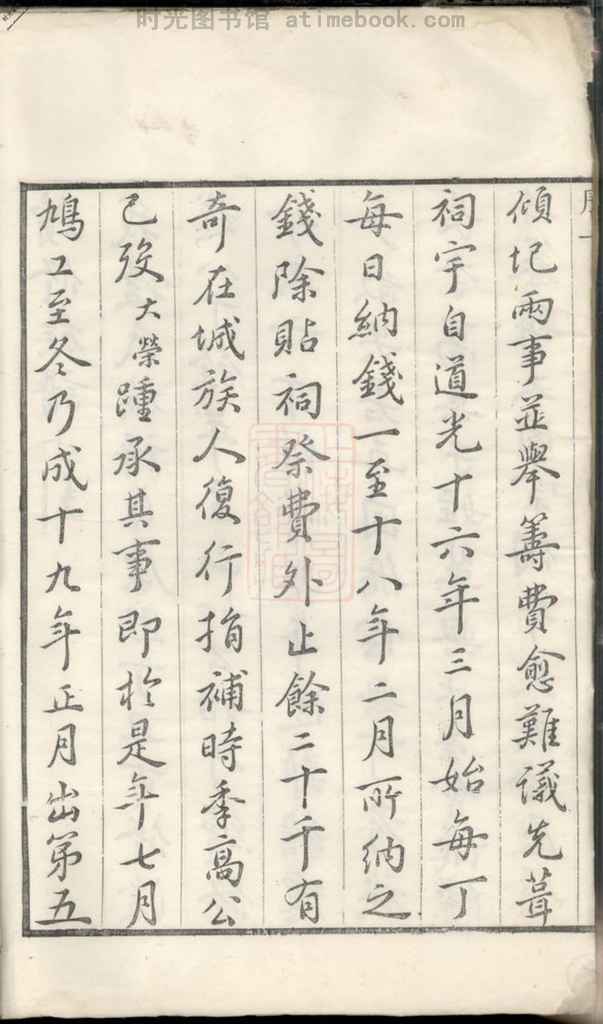 时光图书馆 atimebook.com
序一
傾圮兩事並舉籌費愈難議先葺
祠宇自道光十六年三月始每丁
每日納錢一至十八年二月所納之
錢除貼祠祭費外止餘二十千有
奇在城族人復行捐補時季高公
已歿大榮踵承其事即於是年七月
鳩工至冬乃成十九年正月出第五